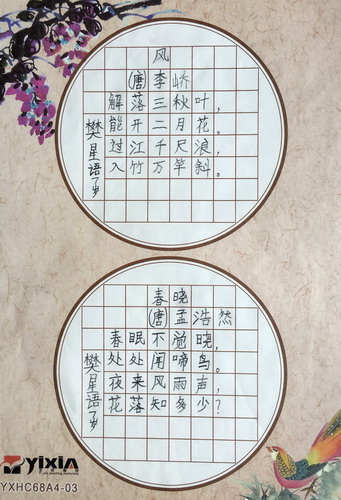 风
(唐)李峤
解落三秋叶,
能开二月花。
过江千尺浪,
入竹万竿斜。
樊星语7岁
春晓
(唐)孟浩然
春眠不觉晓,
处处闻啼鸟。
夜来风雨声,
花落知多少?
樊星语7岁
yixin
YXHC68A4-03